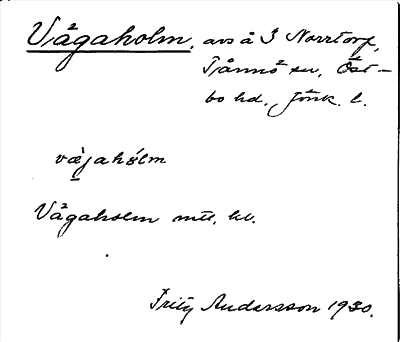 Vågaholm, avs å I Norrtorp,
Tånnö sn, Öst-
bo hd, Jönk. l.
våjahólm
Vågaholm mtl. kl.
Fritz Andersson 1930.